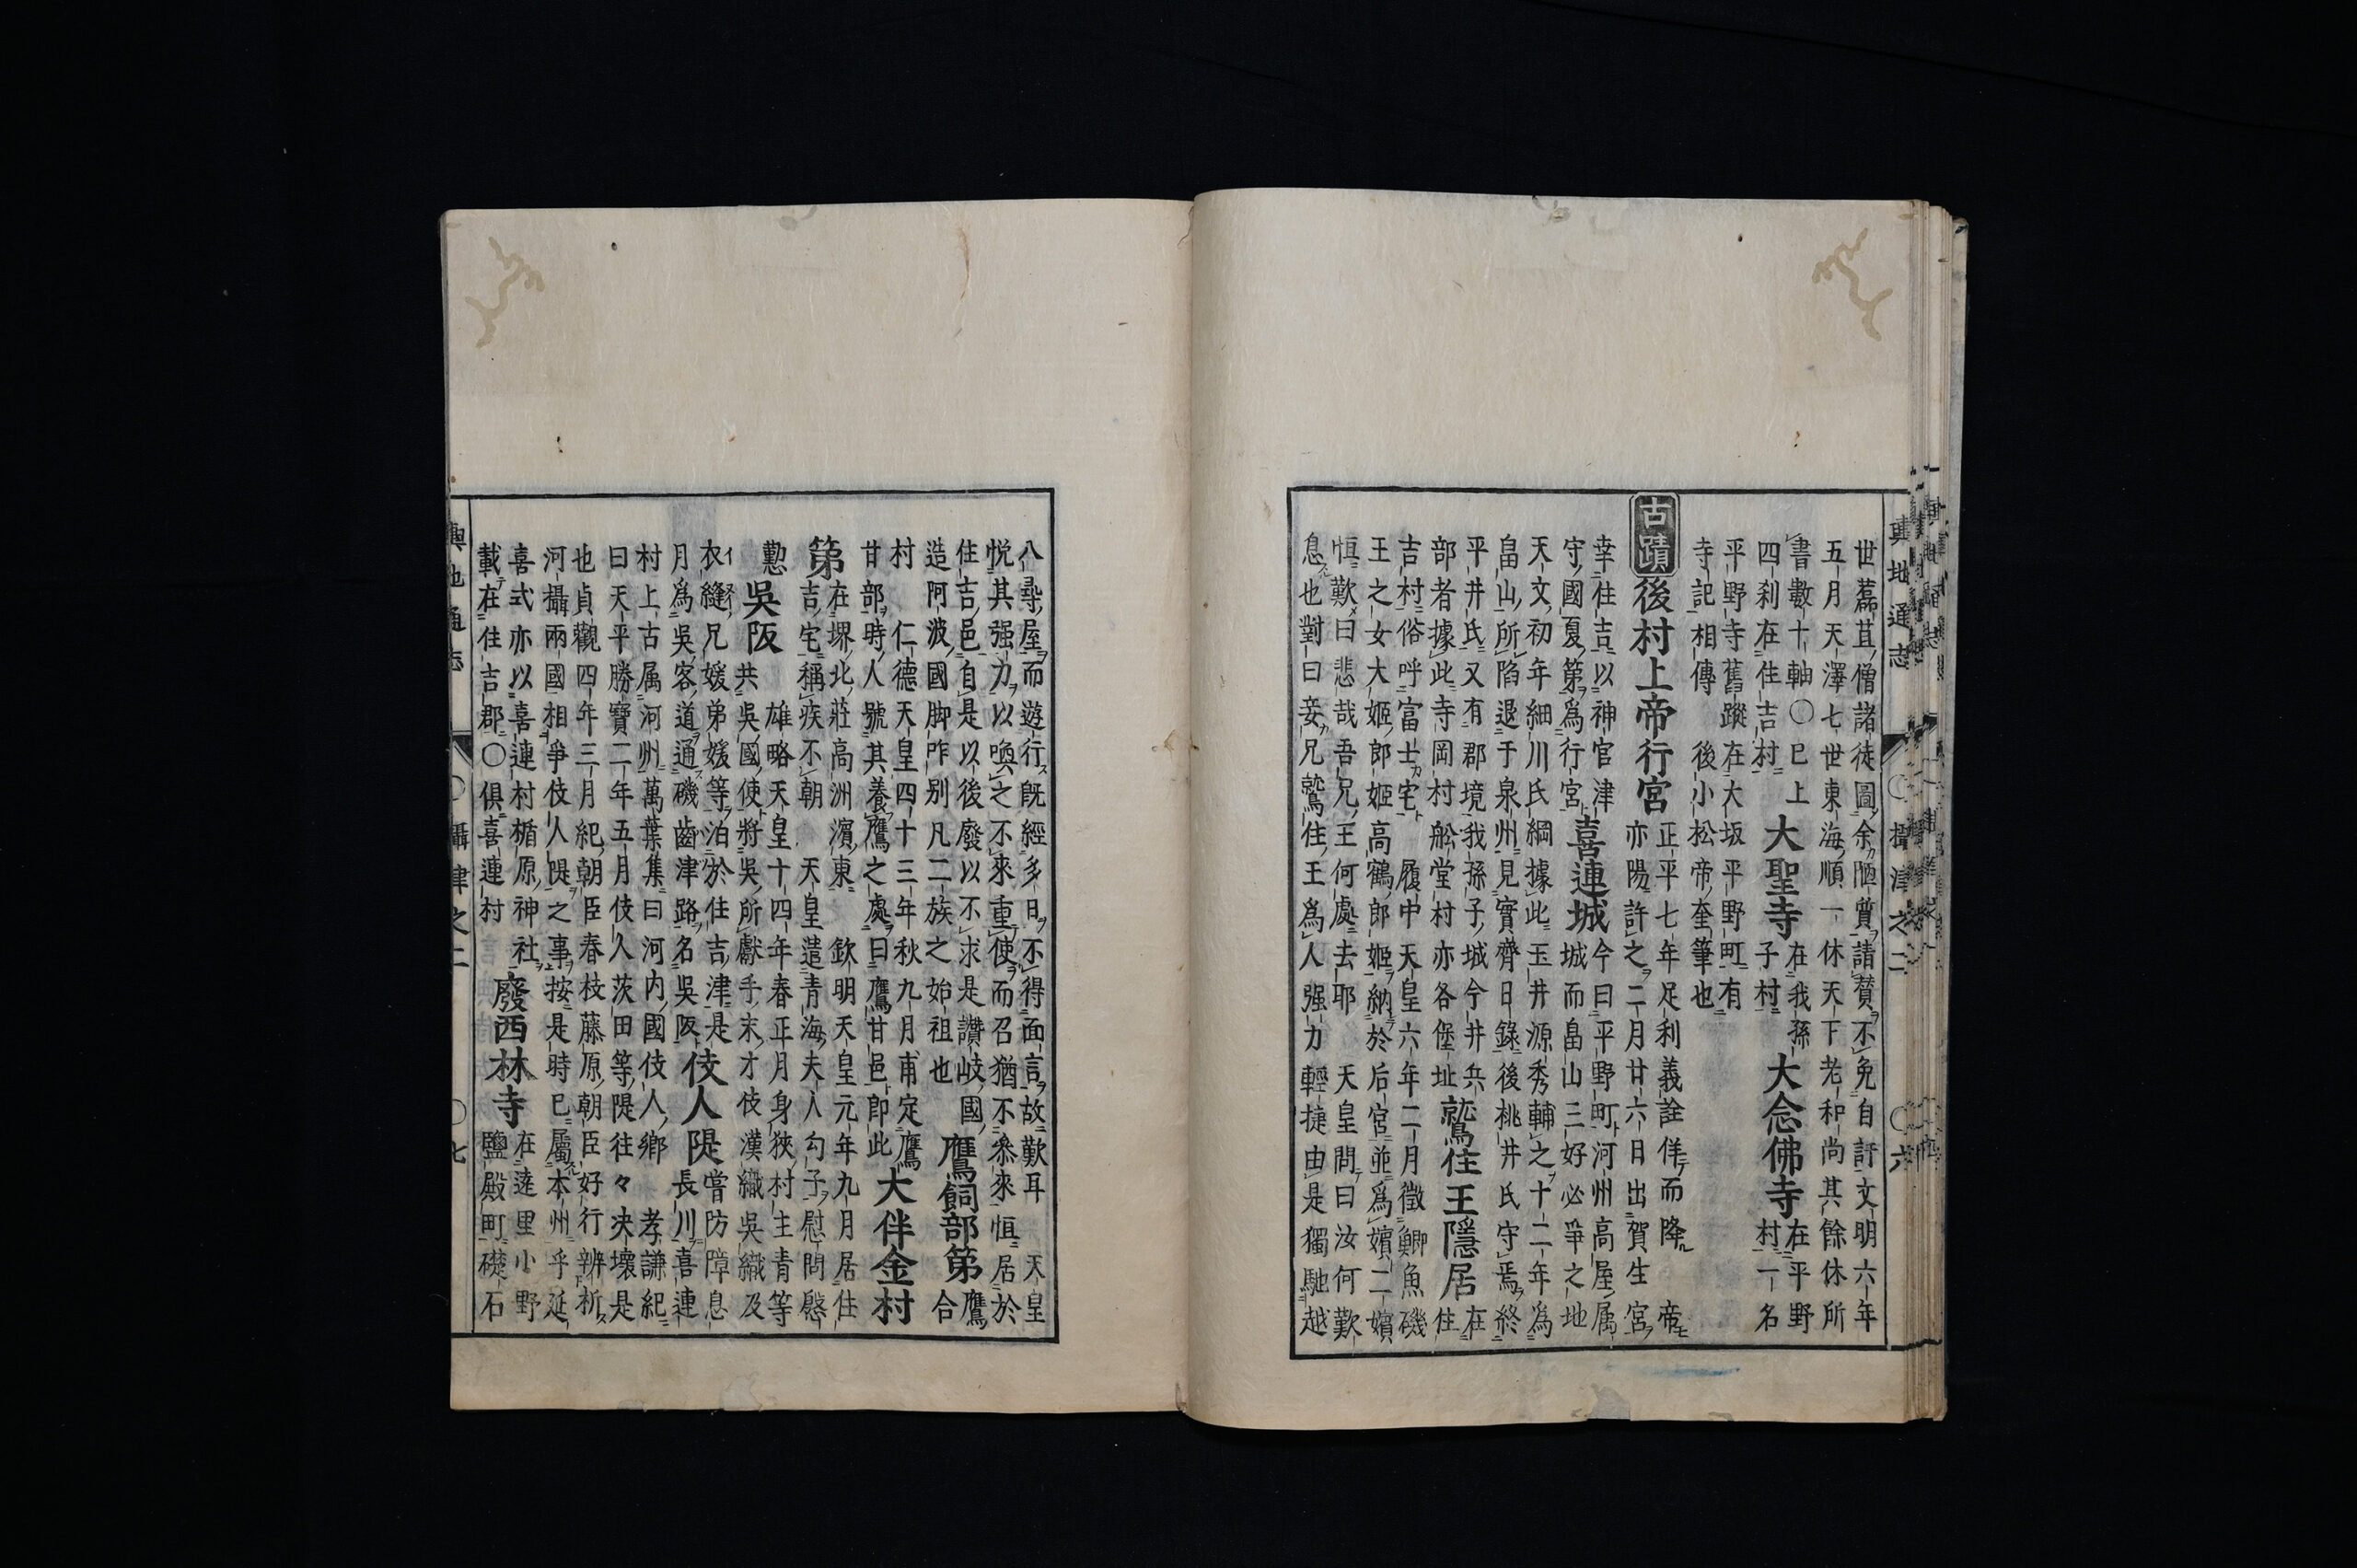 輿地通志 ○攝津之二 ○六
世蕋苴僧諸徒圖余陋質請賛不免自訐文明六年
五月天澤七世東海順一休天下老和尚其餘休所
書數十軸○巳上
四刹在住吉村
大聖寺
在我孫
子村
大念佛寺
在平野
村一名
平野寺舊蹤在大坂平野町有
寺記相傳 後小松帝奎筆也
古蹟 後村上帝行宮
正平七年足利義詮佯而降 帝
亦陽許之二月廿六日出賀生宮
幸住吉以神官津
守國夏第為行宮
喜連城
今曰平野町河州高屋属
城而畠山三好必爭之地
天文初年細川氏綱據此玉井源秀輔之十二年為
畠山所陷退于泉州見實齊日錄後桃井氏守焉終
平井氏又有郡境我孫子城今井兵
部者據此寺岡村舩堂村亦各堡址
鷲住王隱居
在
住
吉村俗呼富士宅 履中天皇六年二月徵鯽魚磯
王之女大姬郎姬高鶴郎姬納於后宮並為嬪二嬪
恒歎曰悲哉吾兄王何處去耶 天皇問曰汝何歎
息也對曰妾兄鷲住王為人强力輕捷由是獨馳越
八尋屋而遊行既經多日不得面言故歎耳 天皇
悅其强力以喚之不來重使而召猶不叅來恒居於
住吉邑自是以後廢以不求是讃岐國
造阿波國脚咋别凡二族之始祖也
鷹飼部第
鷹
合
村 仁德天皇四十三年秋九月甫定鷹
甘部時人號其養鷹之處曰鷹甘邑即此
大伴金村
第
在堺北莊高洲濱東 欽明天皇元年九月居住
吉宅稱疾不朝 天皇遣青海夫人勾子慰問慇
懃
呉阪
雄略天皇十四年春正月身狹村主青等
共呉國使將呉所獻手末才伎漢織呉織及
衣縫兄媛弟媛等泊於住吉津是
月為呉客道通磯齒津路名呉阪
伎人隄
嘗防障息
長川喜連
村上古属河州萬葉集曰河内國伎人鄉 孝謙紀
曰天平勝寳二年五月伎人茨田等隄往々决壞是
也貞觀四年三月紀朝臣春枝藤原朝臣好行辨析
河攝兩國相爭伎人隄之事按是時巳屬本州乎延
喜式亦以喜連村楯原神社
載在住吉郡○俱喜連村
廢西林寺
在遠里小野
鹽殿町礎石
輿地通志 ○攝津之二 ○七